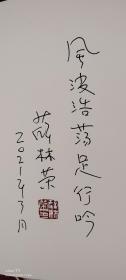 風波浩荡足行吟
薛林荣
2021年3月